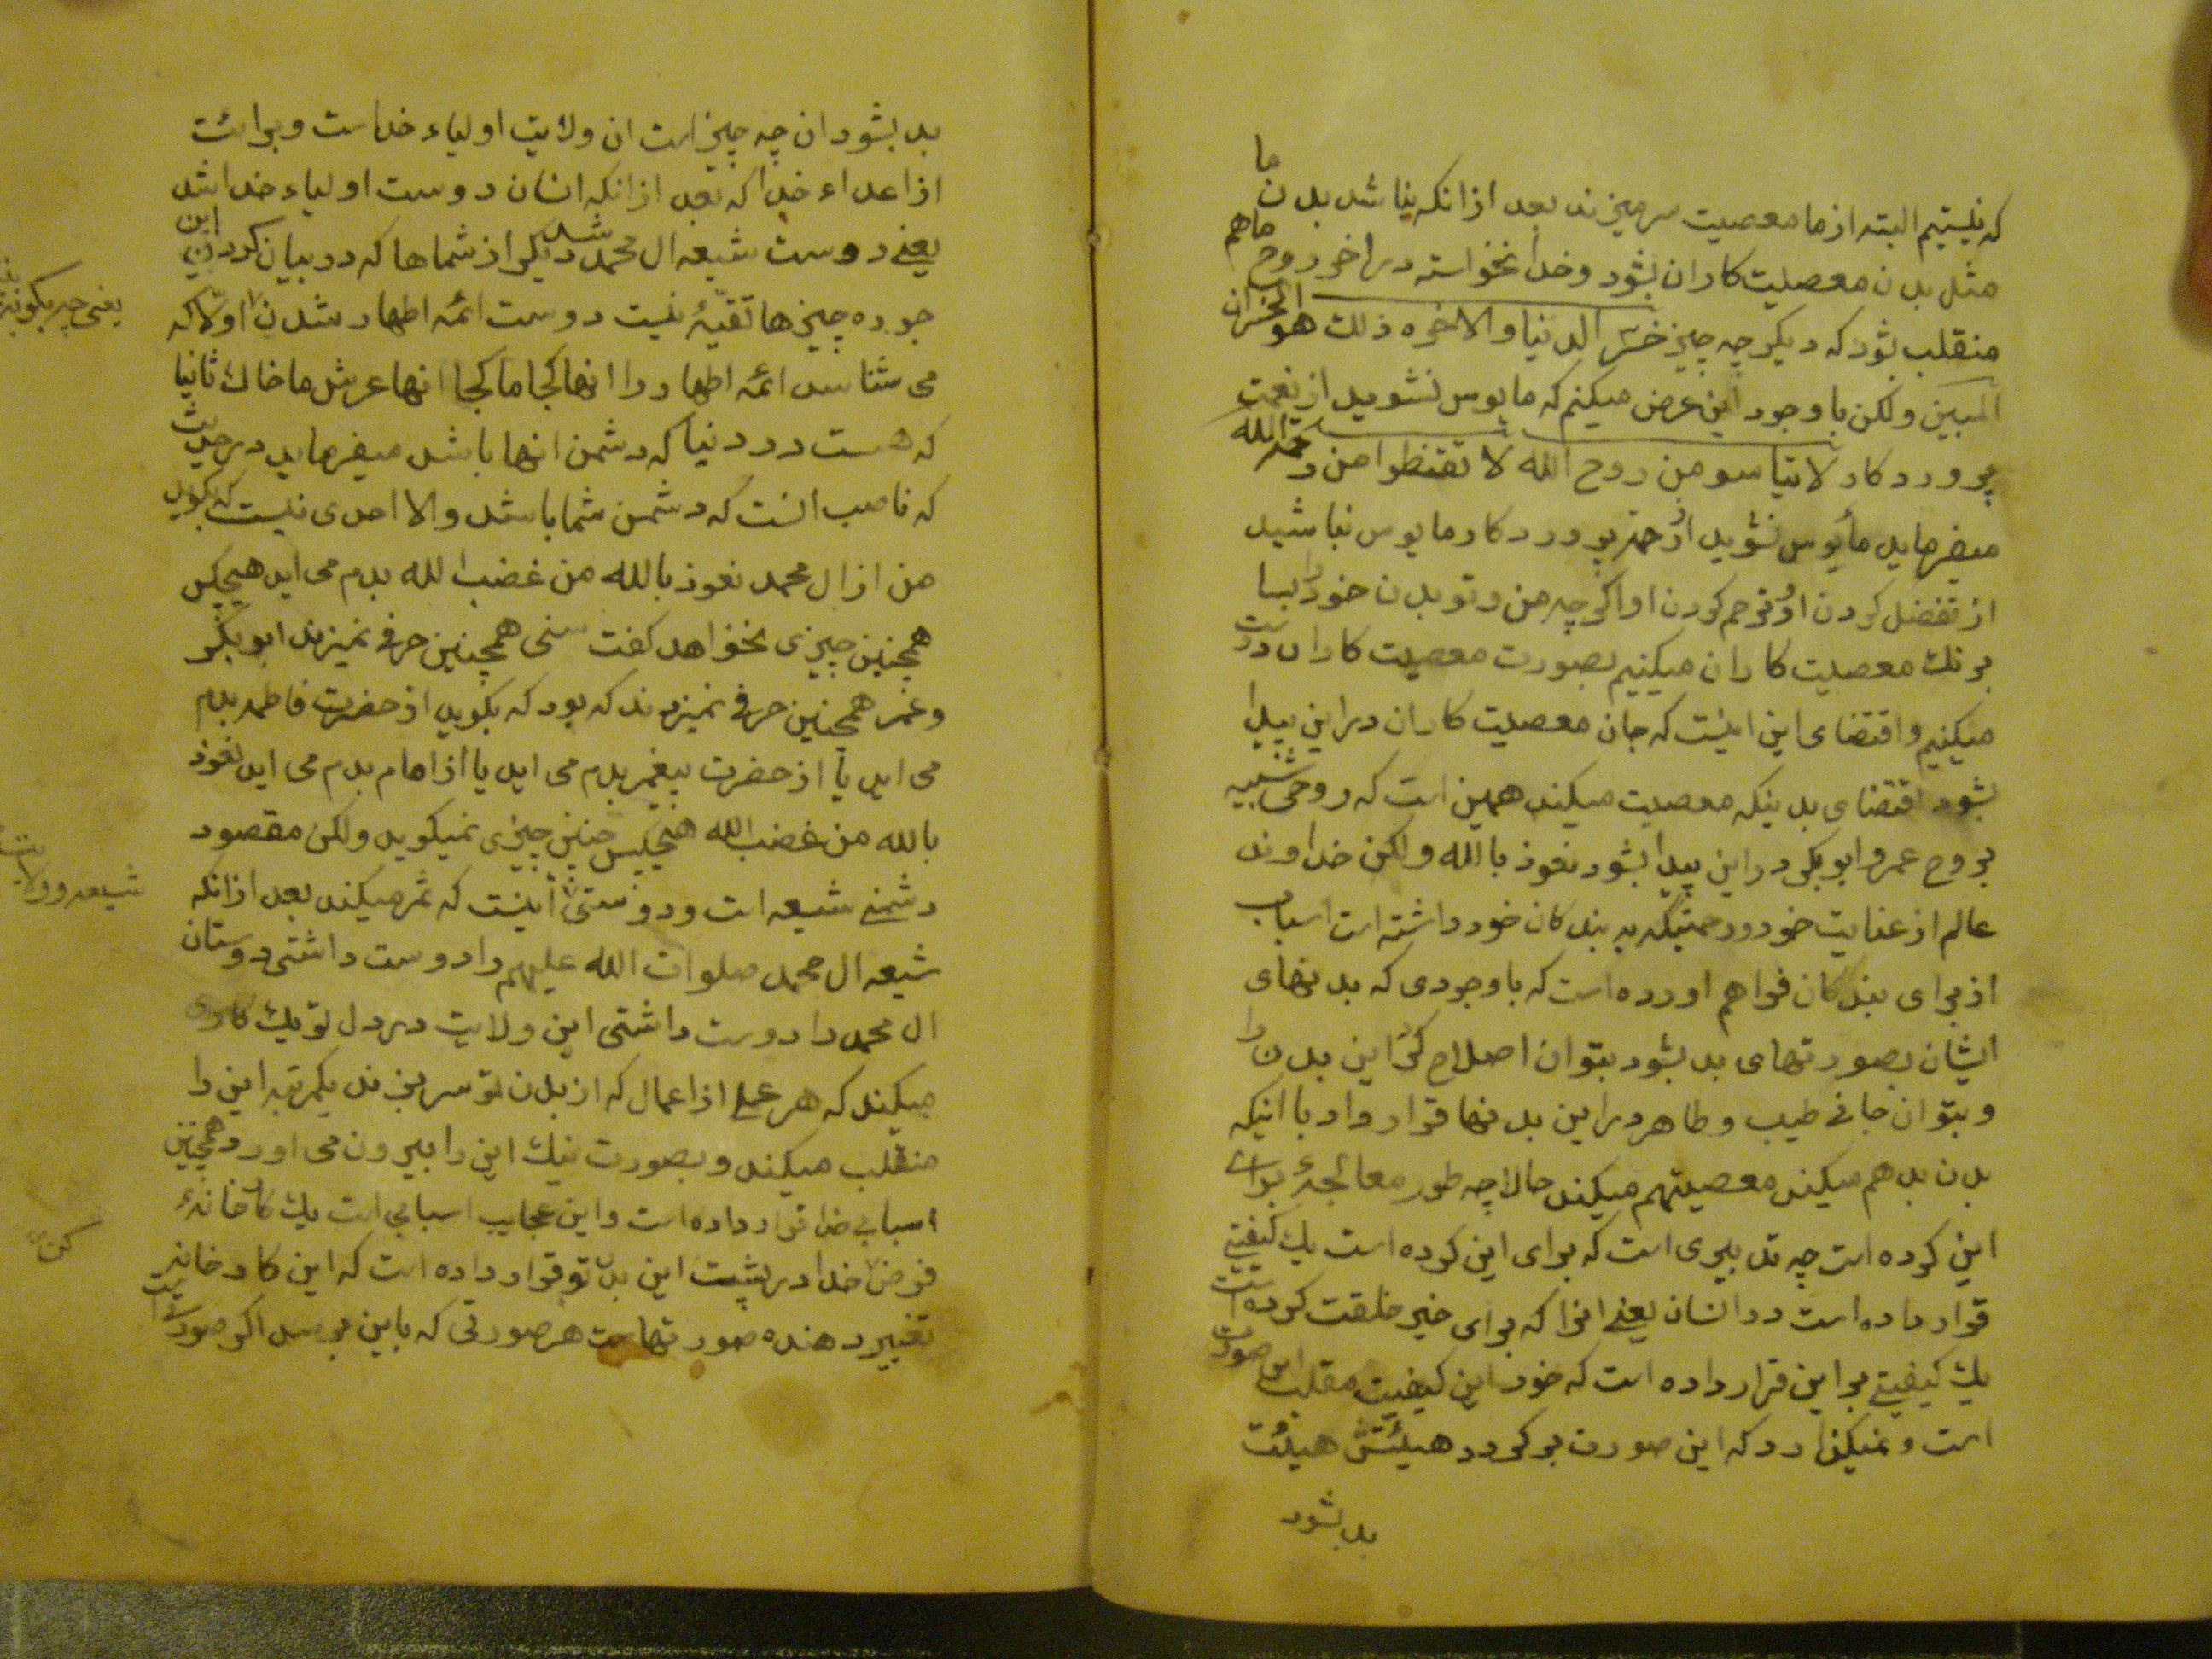 که نیستیم البته از ما معصیت سرمیزند بعد ازانکه بناشد بدن ما
مثل بدن معصیت کاران بشود وخدا نخواسته در اخر روح ماهم
منقلب بشود که دیگر چه چیز خسر الدنیا والاخره ذلك هو الخسران
المبین ولکن با وجود این عرض میکنم که مایوس نشوید از نعمت
پروردکار لا تیاسو من روح الله لا تقنطوا من رحمة الله
میفرماید مأیوس نشوید از رحمة پروردکار مایوس نباشید
از تفضل کردن او و ترحم کردن او اکرچه من و تو بدن خود را بسا
برنك معصیت کاران میکنیم بصورت معصیت کاران درست
میکنیم و اقتضای این اینست که جان معصیت کاران در این پیدا
بشود اقتضای بدنیکه معصیت میکند همین است که روحی شبیه
بروح عمر و ابوبکر در این پیدا بشود نعوذ بالله ولکن خداوند
عالم از عنایت خود ورحمتیکه به بندکان خود داشته است اسباب
از برای بندکان فراهم اورده است که با وجودی که بدنهای
ایشان بصورتهای بد بشود بتوان اصلاح کرد این بدن را
و بتوان جانی طیب و طاهر در این بدنها قرار داد با اینکه
بدن بد هم میکند معصیتهم میکند حالا چه طور معالجهٔ برای
این کرده است چه تدبیری است که برای این کرده است یك کیفیتی
قرار داده است در انسان یعنی انرا که برای خیر خلقت کرده است
یك کیفیتی براین قرار داده است که خود این کیفیت مقلب این صورت
است و نمیکذارد که این صورت برکردد هیئتش هیئت
بد بشود
بد بشود ان چه چیز است ان ولایت اولیاء خداست و برائت
از اعداء خدا که بعد ازانکه انسان دوست اولیاء خدا شد
یعنی دوست شیعه ال محمد شد دیکر از شماها که در بیان کردن این
جوره چیزها تقیهٔ نیست دوست ائمه اطهار شدن اولا که
می شناسد ائمه اطهار را انها کجا ما کجا انها عرش ما خاك ثانیا
که هست در دنیا که دشمن انها باشد میفرماید در حدیث
که ناصب انست که دشمن شما باشد والا احدی نیست که بکوید
من از ال محمد نعوذ بالله من غضب الله بدم می اید هیچکس
همچنین چیزی نخواهد کفت سنی همچنین حرفی نمیزند ابوبکر
وعمر همچنین حرفی نمیزدند که بود که بکوید از حضرت فاطمه بدم
می اید یا از حضرت پیغمبر بدم می اید یا از امام بدم می اید نعوذ
بالله من غضب الله هیچکس چنین چیزی نمیکوید ولکن مقصود
دشمنی شیعه است ودوستی اینست که ثمر میکند بعد ازانکه
شیعه ال محمد صلوات الله علیهم را دوست داشتی دوستان
ال محمد را دوست داشتی این ولایت در دل تو یك کاری
میکند که هر عملی از اعمال که از بدن تو سر بزند یکمرتبه این را
منقلب میکند وبصورت نیك این را بیرون می اورد همچنین
اسبابی خدا قرار داده است واین عجایب اسبابی است یك کارخانهٔ
فرض خدا در پشت این بدن تو قرار داده است که این کارخانه
تغییر دهنده صورتهاست هر صورتی که باین برسد اکر صورت
شیعه وولایت